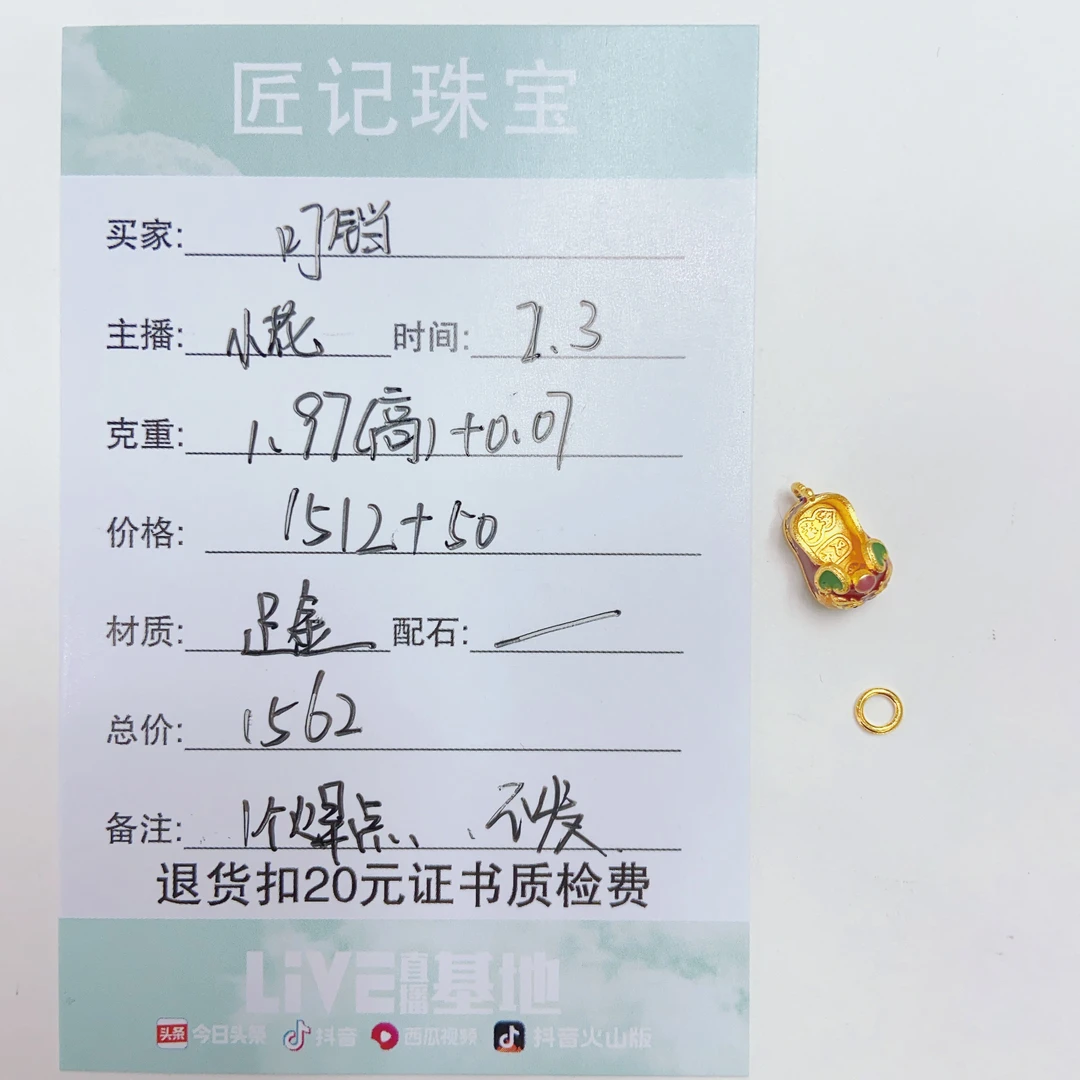 匠记珠宝
买家: 叮当
主播: 小花 时间: 7.3
克重: 1.97(高)+0.07
价格: 1512+50
材质: 足金 配石: /
总价: 1562
备注: 1个焊点、不发
退货扣20元证书质检费
LiVE直播基地
头条 今日头条 抖音 西瓜视频 抖音火山版